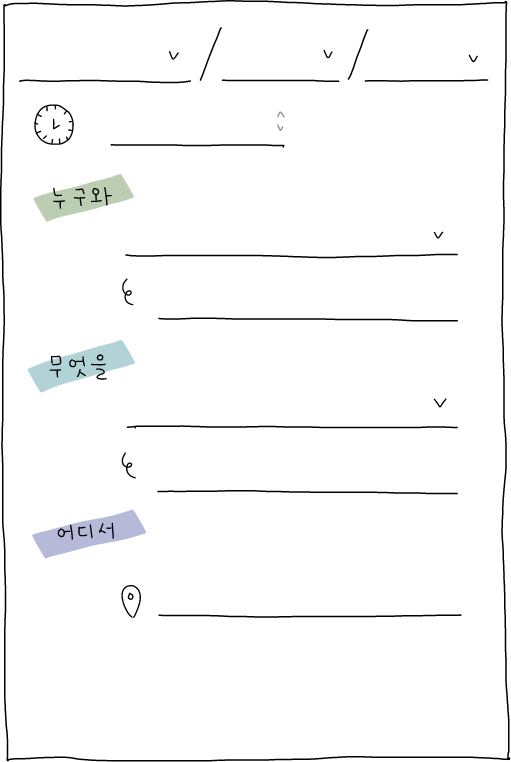 누구와
무엇을
어디서